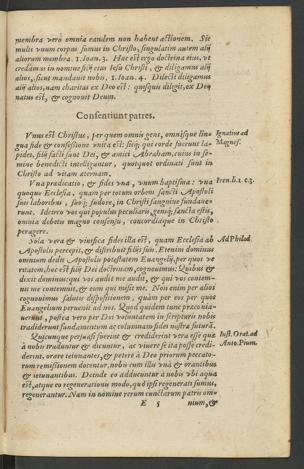 membra verò omnia eandem non habent actionem. Sic
multi vnum corpus sumus in Christo, singulatim autem alij
aliorum membra. 1. Ioan. 3. Hæc est ergo doctrina eius, vt
credamus in nomine filij eius Iesu Christi, & diligamus alij
alios, sicut mandauit nobis, 1. Ioan. 4. Dilecti diligamus
alij alios, nam charitas ex Deo est: quisquis diligit, ex Deo
natus est, & cognouit Deum.
Consentiunt patres.
Vnus est Christus, per quem omnis gens, omnisque lin-
gua fide & confessione vnita est: sicq; qui corde fuerunt la-
pides, filij facti sunt Dei, & amici Abraham, cuius in se-
mine benedicti intelliguntur, quotquot ordinati sunt in
Christo ad vitam æternam.
Ignatius ad
Magnes.
Vna prædicatio, & fides vna, vnum baptisma: vna
quoque Ecclesia, quam per totum orbem sancti Apostoli
suis laboribus, suoq; sudore, in Christi sanguine fundaue-
runt. Ideirco vos qui populus peculiaris, gensq; sancta estis,
omnia debetis magno consensu, concordiaque in Christo
peragere.
Iren. li. 1. c. 3.
Sola vera & viuifica fides illa est, quam Ecclesia ab
Apostolis percepit, & distribuit filijs suis, Etenim dominus
omnium dedit Apostolis potestatem Euangelij, per quos ve-
ritatem, hoc est filij Dei doctrinam, cognouimus: Quibus &
dixit dominus: qui vos audit me audit, & qui vos contem-
nit me contemnit, & eum qui misit me. Non enim per alios
cognouimus salutis dispositionem, quàm per eos per quos
Euangelium peruenit ad nos. Quod quidem tunc præconia-
uerunt, postea vero per Dei voluntatem in scripturis nobis
tradiderunt fundamentum ac columnam fidei nostræ futurã.
Ad Philad.
Quicumque persuasi fuerint & crediderint vera esse quæ
à nobis traduntur & dicuntur, ac viuere se ita posse credi-
derint, orare ieiunantes, & petere à Deo priorum peccato-
rum remissionem docentur, nobis cum illis vnà & orantibus
& ieiunantibus. Deinde eo adducuntur à nobis vbi aqua
est, atque eo regenerationis modo, quo & ipsi regenerati sumus,
regenerantur. Nam in nomine rerum cunctarum patris om-
Iust. Orat. ad
Anto. Pium.
E 5
nium, &